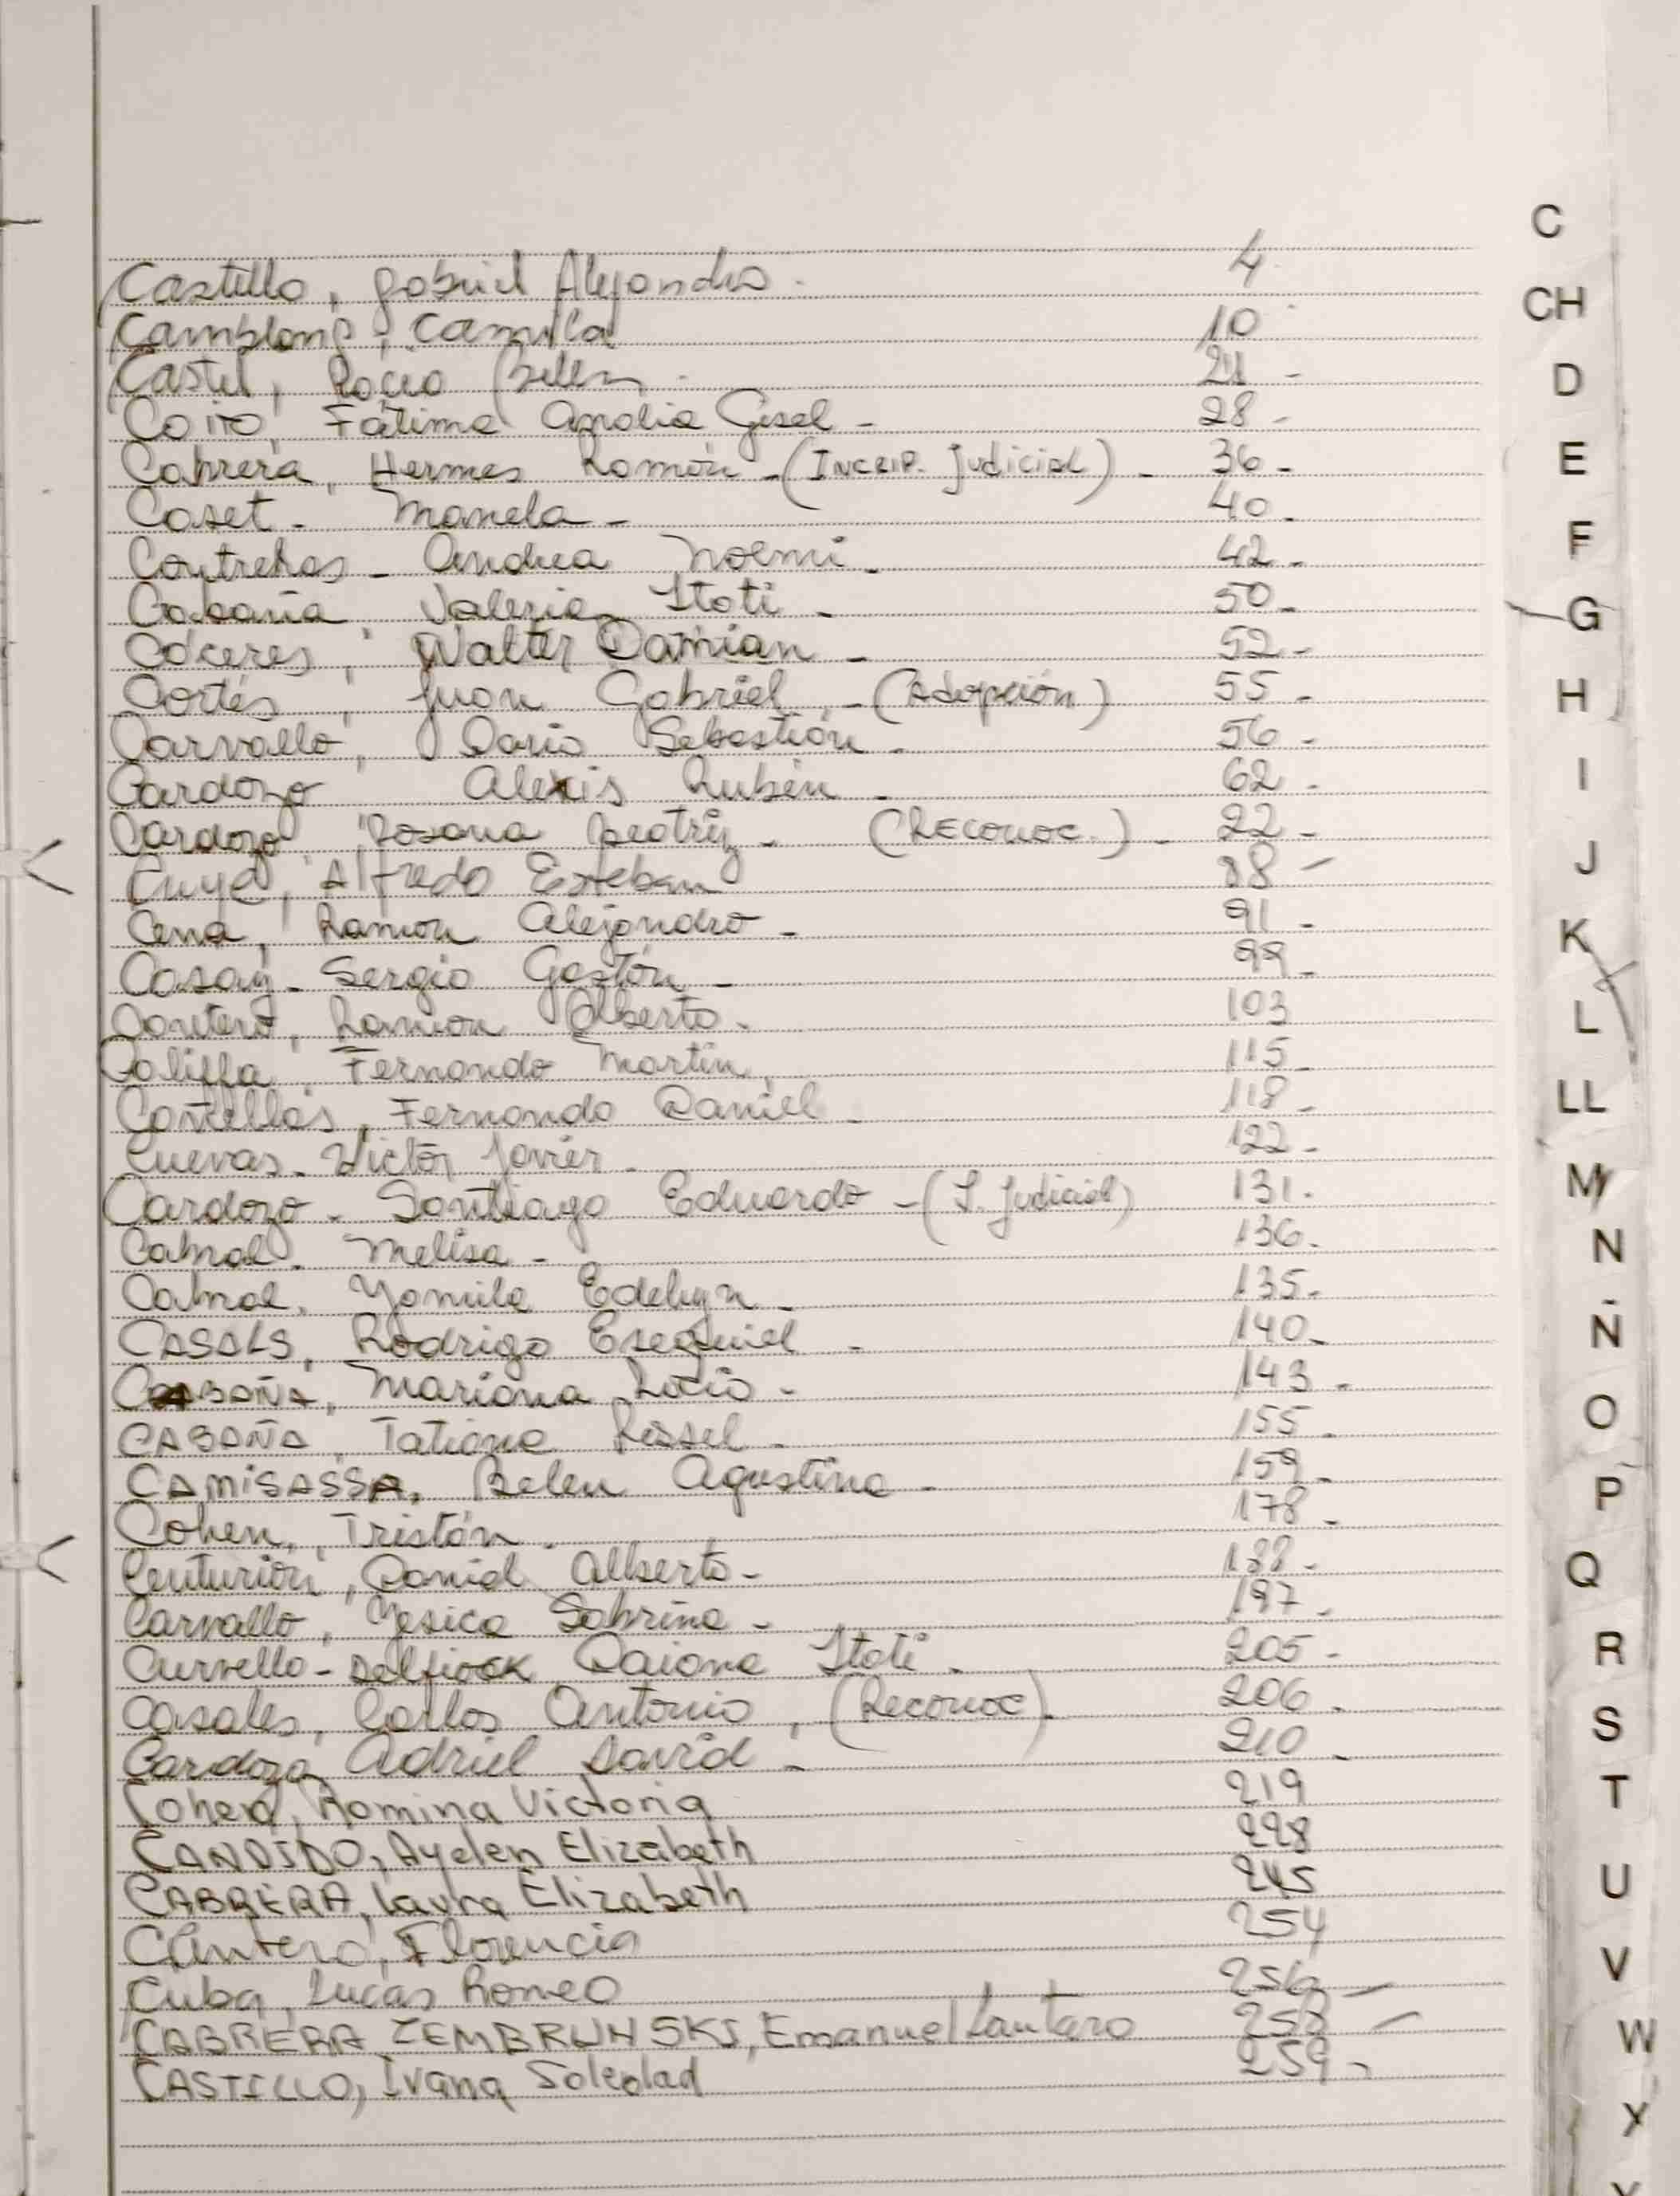 C
Castillo, Gabriel Alejandro. 4
CH
Camblong, Camila 10
Castel, Rocío Belen. 24 -
D
Coito, Fátima Analia Gisel - 28 -
Cabrera, Hermes Ramón - (Incrip. Judicial) - 36 -
E
Coset - Mariela - 40 -
Contreras - Andrea Noemi - 42 -
F
Cabaña Valeria Itati - 50 -
G
Cáceres, Walter Damian - 52 -
Cortés, Juan Gabriel - (Adopción) 55 -
H
Carvallo, Dario Sebastián - 56 -
Cardozo Alexis Rubén - 62 -
I
Cardozo Rosana Beatriz - (Reconoc.) - 22 -
J
Alfredo Esteban 88 -
Cena, Ramon Alejandro - 91 -
K
Sergio Gastón - 99 -
Cantero, Ramon Alberto - 103
L
Califfa, Fernando Martin 115 -
Fernando Daniel - 118 -
LL
Cuevas - Victor Javier - 122 -
M
Cardozo - Santiago Eduardo - (I. Judicial) 131 -
Cabral - Melisa - 136 -
N
Cabral, Yamila Edelyn - 135 -
CASALS, Rodrigo Esequiel - 140 -
Ñ
CABAÑA, Mariana Rocio - 143 -
O
CABAÑA, Tatiana - 155 -
CAMISASSA, Belen Agustina - 159 -
P
Cohen, Tristán - 178 -
Q
Centurion, Daniel Alberto - 188 -
Carvallo, Yesica Sabrina - 197 -
R
Daiana Itati - 205 -
Casales, Carlos Antonio, (Reconoc) - 206 -
S
Cardozo Adriel David - 210 -
T
Cohen, Romina Victoria 219
CANDIDO, Ayelen Elizabeth 228
U
CABRERA, Laura Elizabeth 245
Cantero, Florencia 254
V
Cuba, Lucas Romeo 256 -
W
CABRERA ZEMBRUNSKI, Emanuel Lautaro 258 -
CASTILLO, Ivana Soledad 259 -
X
Y